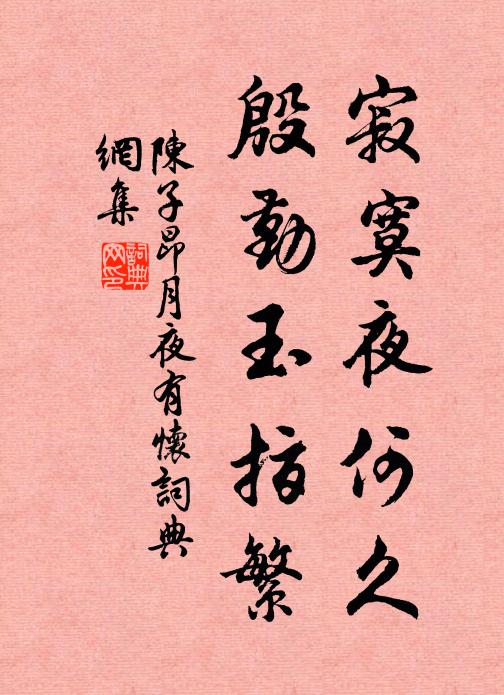 寂寞夜何久
殷勤玉指繁
陳子昂月夜有懷詞典
網集
詞典
网印